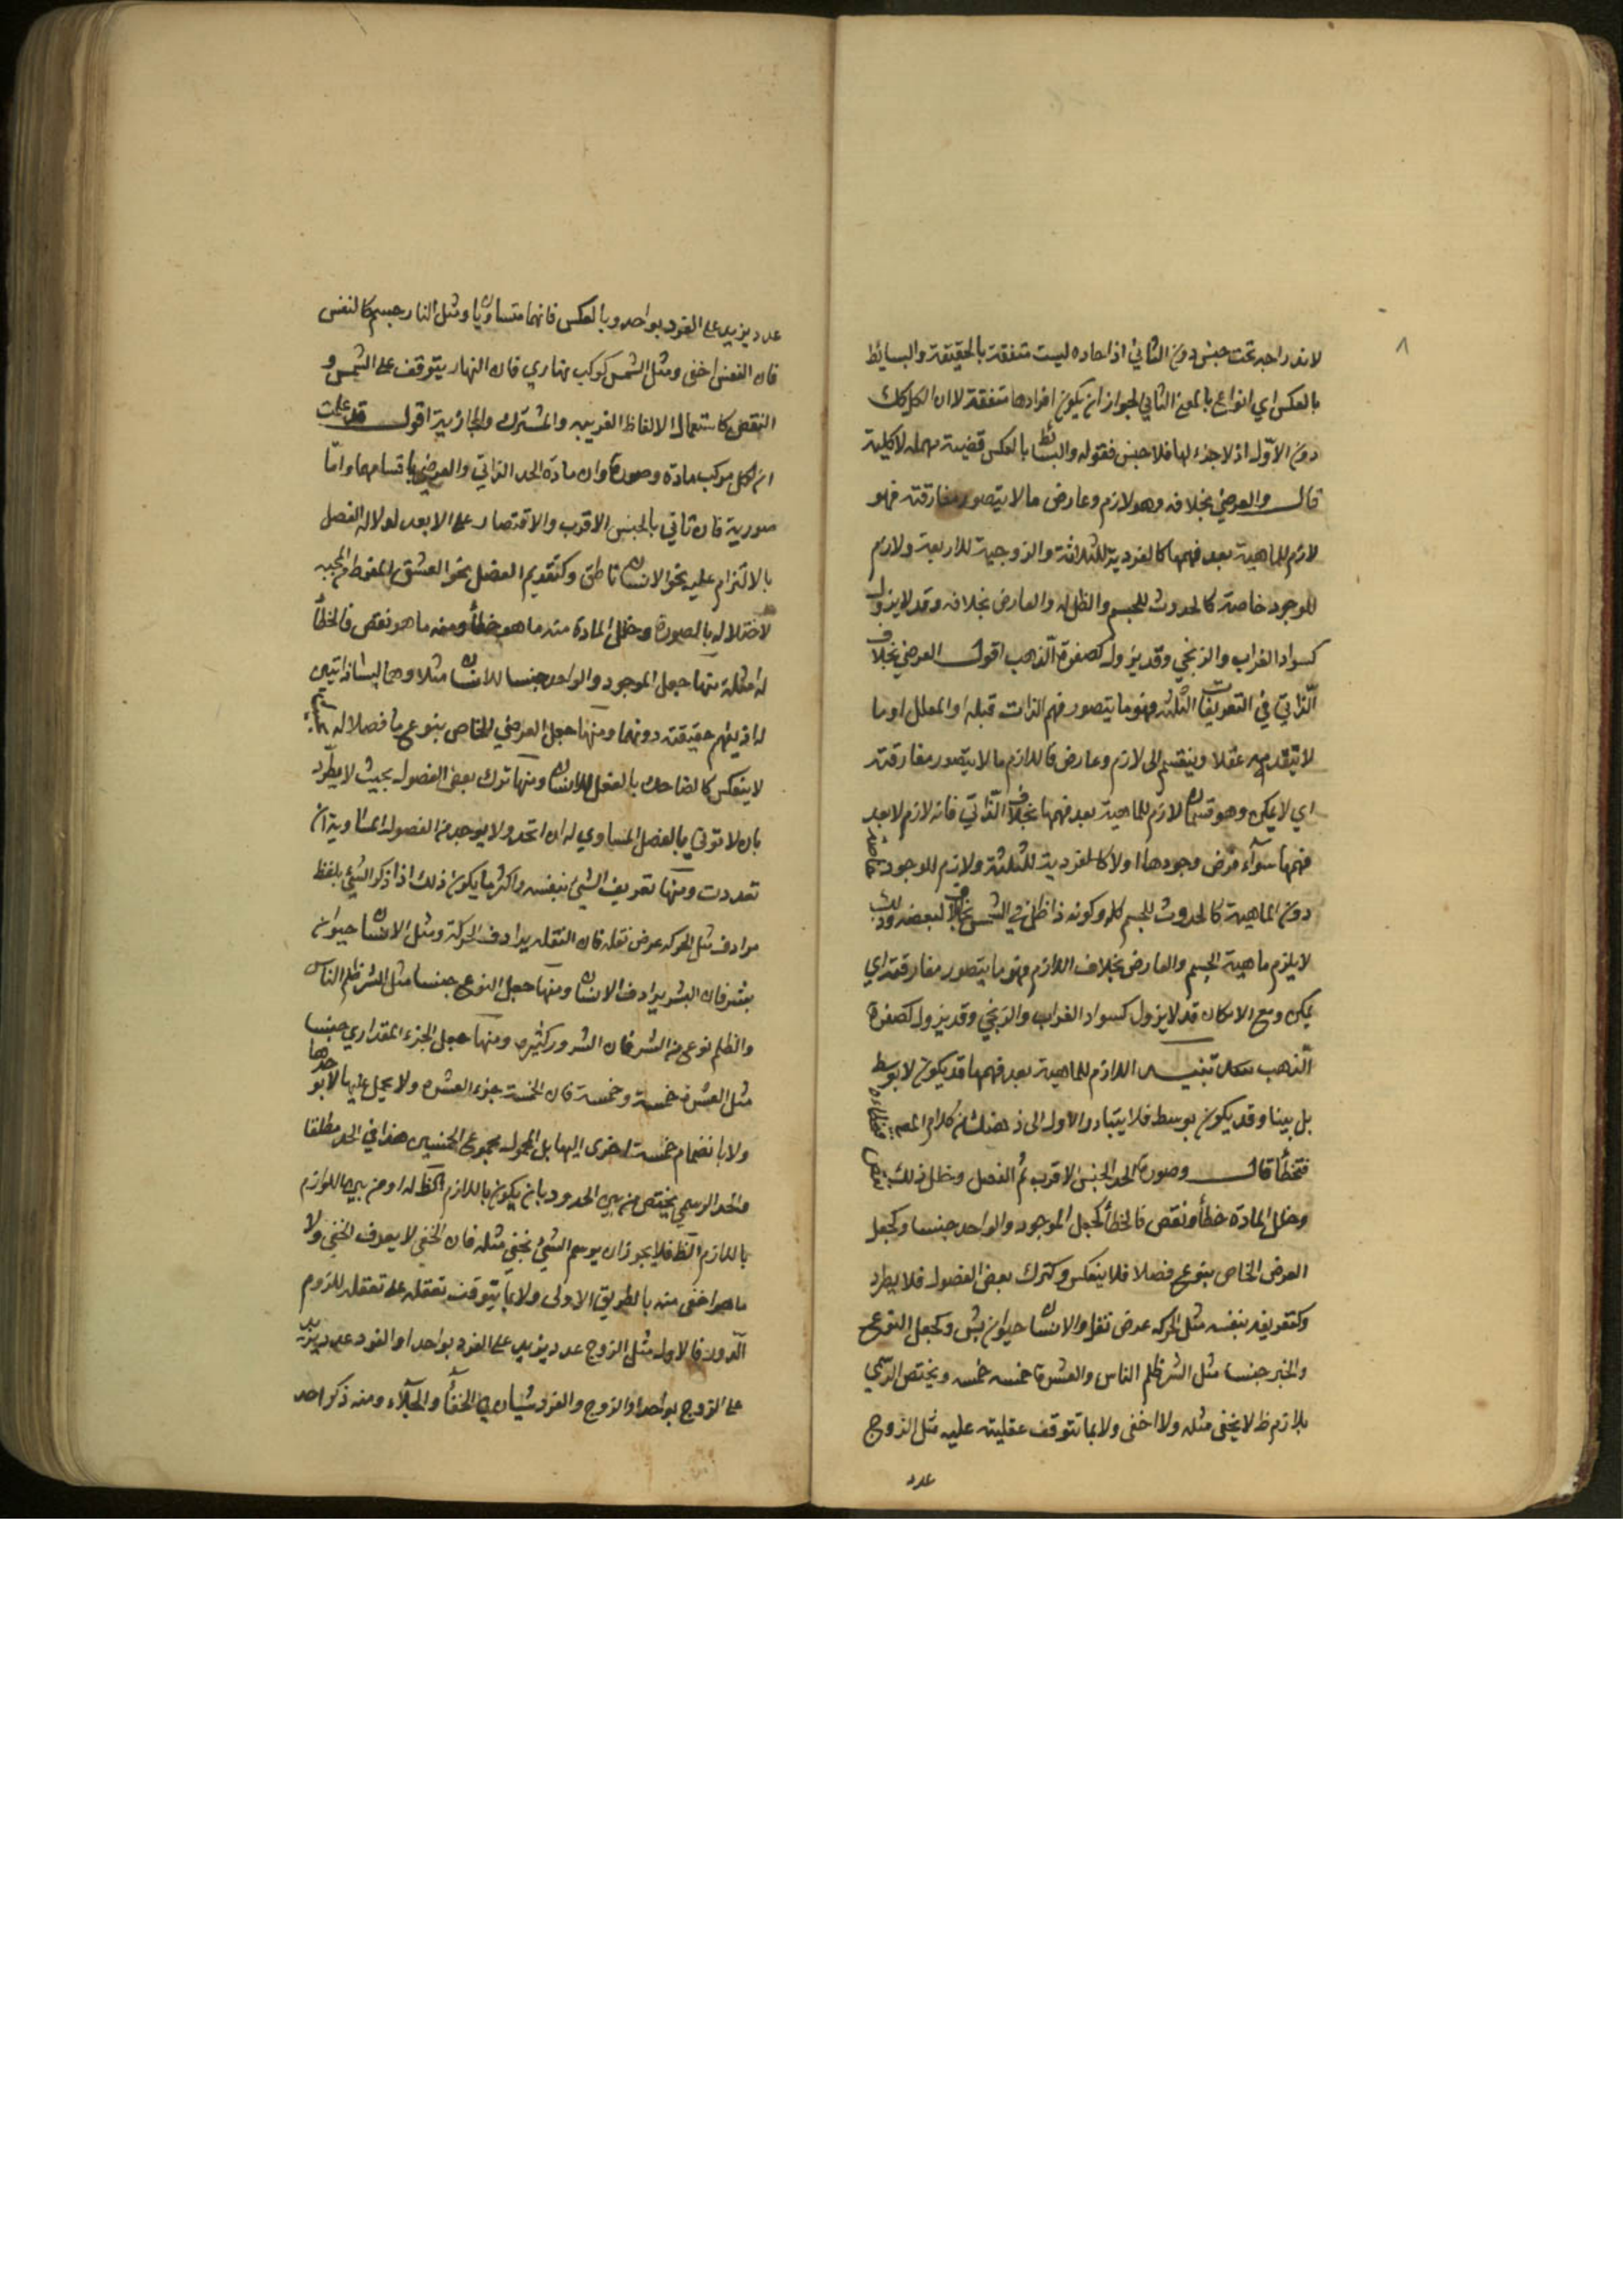 ٨
لاندراجه تحت جنس دون الثاني اذ احاده ليست متفقة بالحقيقة والبسائط
بالعكس اي انواع بالمعنى الثاني لجواز ان يكون افرادها متفقة لا ان الكل كك
دون الاول اذ لا جزء لها فلا جنس فقوله والبسائط بالعكس قضية مهملة لا كلية
قال والعرضي بخلافه وهو لازم وعارض ما لا يتصور مفارقته فهو
لازم للماهية بعد فهمها كالفردية للثلاثة والزوجية للاربعة ولازم
للوجود خاصة كالحدوث للجسم والظل له والعارض بخلافه وقد لا يزول
كسواد الغراب والزنجي وقد يزول كصفرة الذهب اقول العرضي بخلاف
الذاتي في التعريفات الثلثة فهو ما يتصور فهم الذات قبله او المعلل او ما
لا يتقدمه عقلا وينقسم الى لازم وعارض فاللازم ما لا يتصور مفارقته
اي لا يمكن وهو قسمان لازم للماهية بعد فهمها بخلاف الذاتي فانه لازم لا بعد
فهمها سواء فرض وجودها او لا كالفردية للثلثة ولازم للوجود خاصة
دون الماهية كالحدوث للجسم كله وكونه ذا ظل في الشمس بخلاف لبعضه وذلك
لا يلزم ماهية الجسم والعارض بخلاف اللازم وهو ما يتصور مفارقته اي
يمكن ومع الامكان قد لا يزول كسواد الغراب والزنجي وقد يزول كصفرة
الذهب تنبيه اللازم للماهية بعد فهمها قد يكون لا بوسط
بل بينا وقد يكون بوسط فلا يتبادر الاول الى ذهنك من كلام المصـ
فتخطأ قال وصورة الحد الجنس الاقرب ثم الفصل وخلل ذلك نقص
وخلل المادة خطأ ونقص فالخطأ كجعل الموجود والواحد جنسا وكجعل
العرض الخاص بنوع فصلا فلا ينعكس وكترك بعض الفصول فلا يطرد
وكتعريفه بنفسه مثل الحركة عرض نقلة والانسان حيوان بشر وكجعل النوع
والجزء جنسا مثل الشر ظلم الناس والعشرة خمسة وخمسة ويختص الرسمي
بلازم ظ لا بخفي مثله ولا اخفى ولا بما تتوقف عقليته عليه مثل الزوج
عدد
عدد يزيد على الفرد بواحد وبالعكس فانهما متساويان ومثل النار جسم كالنفس
فان النفس اخفى ومثل الشمس كوكب نهاري فان النهار يتوقف على الشمس و
النقص كاستعمال الالفاظ الغريبه والمشتركة والمجازية اقول قد علمت
ان لكل مركب مادة وصورة وان مادة الحد الذاتي والعرضي باقسامهما واما
صورية فان تاتي بالجنس الاقرب والاقتصار على الابعد لدلالة الفصل
بالالتزام عليه نحو الانسان ناطق وكتقديم الفصل نحو العشق المفرط من المحبة
لاختلاله بالصورة وخلل المادة منه ما هو خطأ ومنه ما هو نقص فالخطأ
له امثلة منها جعل الموجود والواحد جنسا للانسان مثلا وهما ليسا ذاتيين
له اذ يفهم حقيقته دونهما ومنها جعل العرضي الخاص بنوع ما فصلا له
لا ينعكس كالضاحك بالفعل للانسان ومنها ترك بعض الفصول بحيث لا يطرد
بان لا توتى بالفصل المساوي له ان اتحد ولا يوجد من الفصول المساوية ان
تعددت ومنها تعريف الشيء بنفسه واكثر ما يكون ذلك اذا ذكر الشيء بلفظ
مرادف مثل الحركة عرض نقلة فان النقلة يرادف الحركة ومثل الانسان حيوان
بشر فان البشر يرادف الانسان ومنها جعل النوع جنسا مثل الشر ظلم الناس
والظلم نوع من الشر فان الشرور كثيرة ومنها جعل الجزء المقداري جنسا
مثل العشرة خمسة وخمسة فان الخمسة جزء العشرة ولا يحمل عليها لا بوحدها
ولا بانضمام خمسة اخرى اليها بل المحمول مجموع الخمستين هذا في الحد مطلقا
والحد الرسمي يختص من بين الحدود بان يكون باللازم الظ له او من بين اللوازم
باللازم الظ فلا يجوز ان يرسم الشيء بخفي مثله فان الخفي لا يعرف الخفي ولا
ما هو اخفى منه بالطريق الاولى ولا بما يتوقف تعقله على تعقله للزوم
الدور فالاول مثل الزوج عدد يزيد على الفرد بواحد او الفرد عدد يزيد
على الزوج بواحد او الزوج والفرد سيان في الخفاء والجلاء ومنه ذكر احد